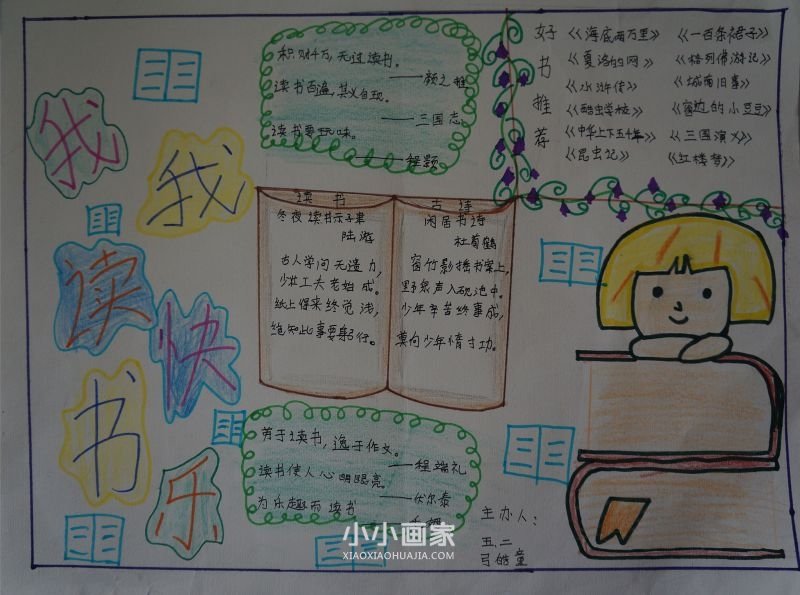 我读书
我快乐
积财千万，无过读书。
——颜之推
读书百遍，其义自现。
——三国志
读书要玩味。
——程颢
好书推荐
《海底两万里》
《一百条裙子》
《夏洛的网》
《格列佛游记》
《水浒传》
《城南旧事》
《酷虫学校》
《窗边的小豆豆》
《中华上下五千年》
《三国演义》
《昆虫记》
《红楼梦》
读书
冬夜读书示子聿
陆游
古人学问无遗力，
少壮工夫老始成。
纸上得来终觉浅，
绝知此事要躬行。
古诗
闲居书诗
杜荀鹤
窗竹影摇书案上，
野泉声入砚池中。
少年辛苦终事成，
莫向少年惰寸功。
劳于读书，逸于作文。
——程端礼
读书使人心明眼亮。
——伏尔泰
为乐趣而读书
主办人：
五.二
弓皓童
小小画家
XIAOXIAOHUAJIA.COM